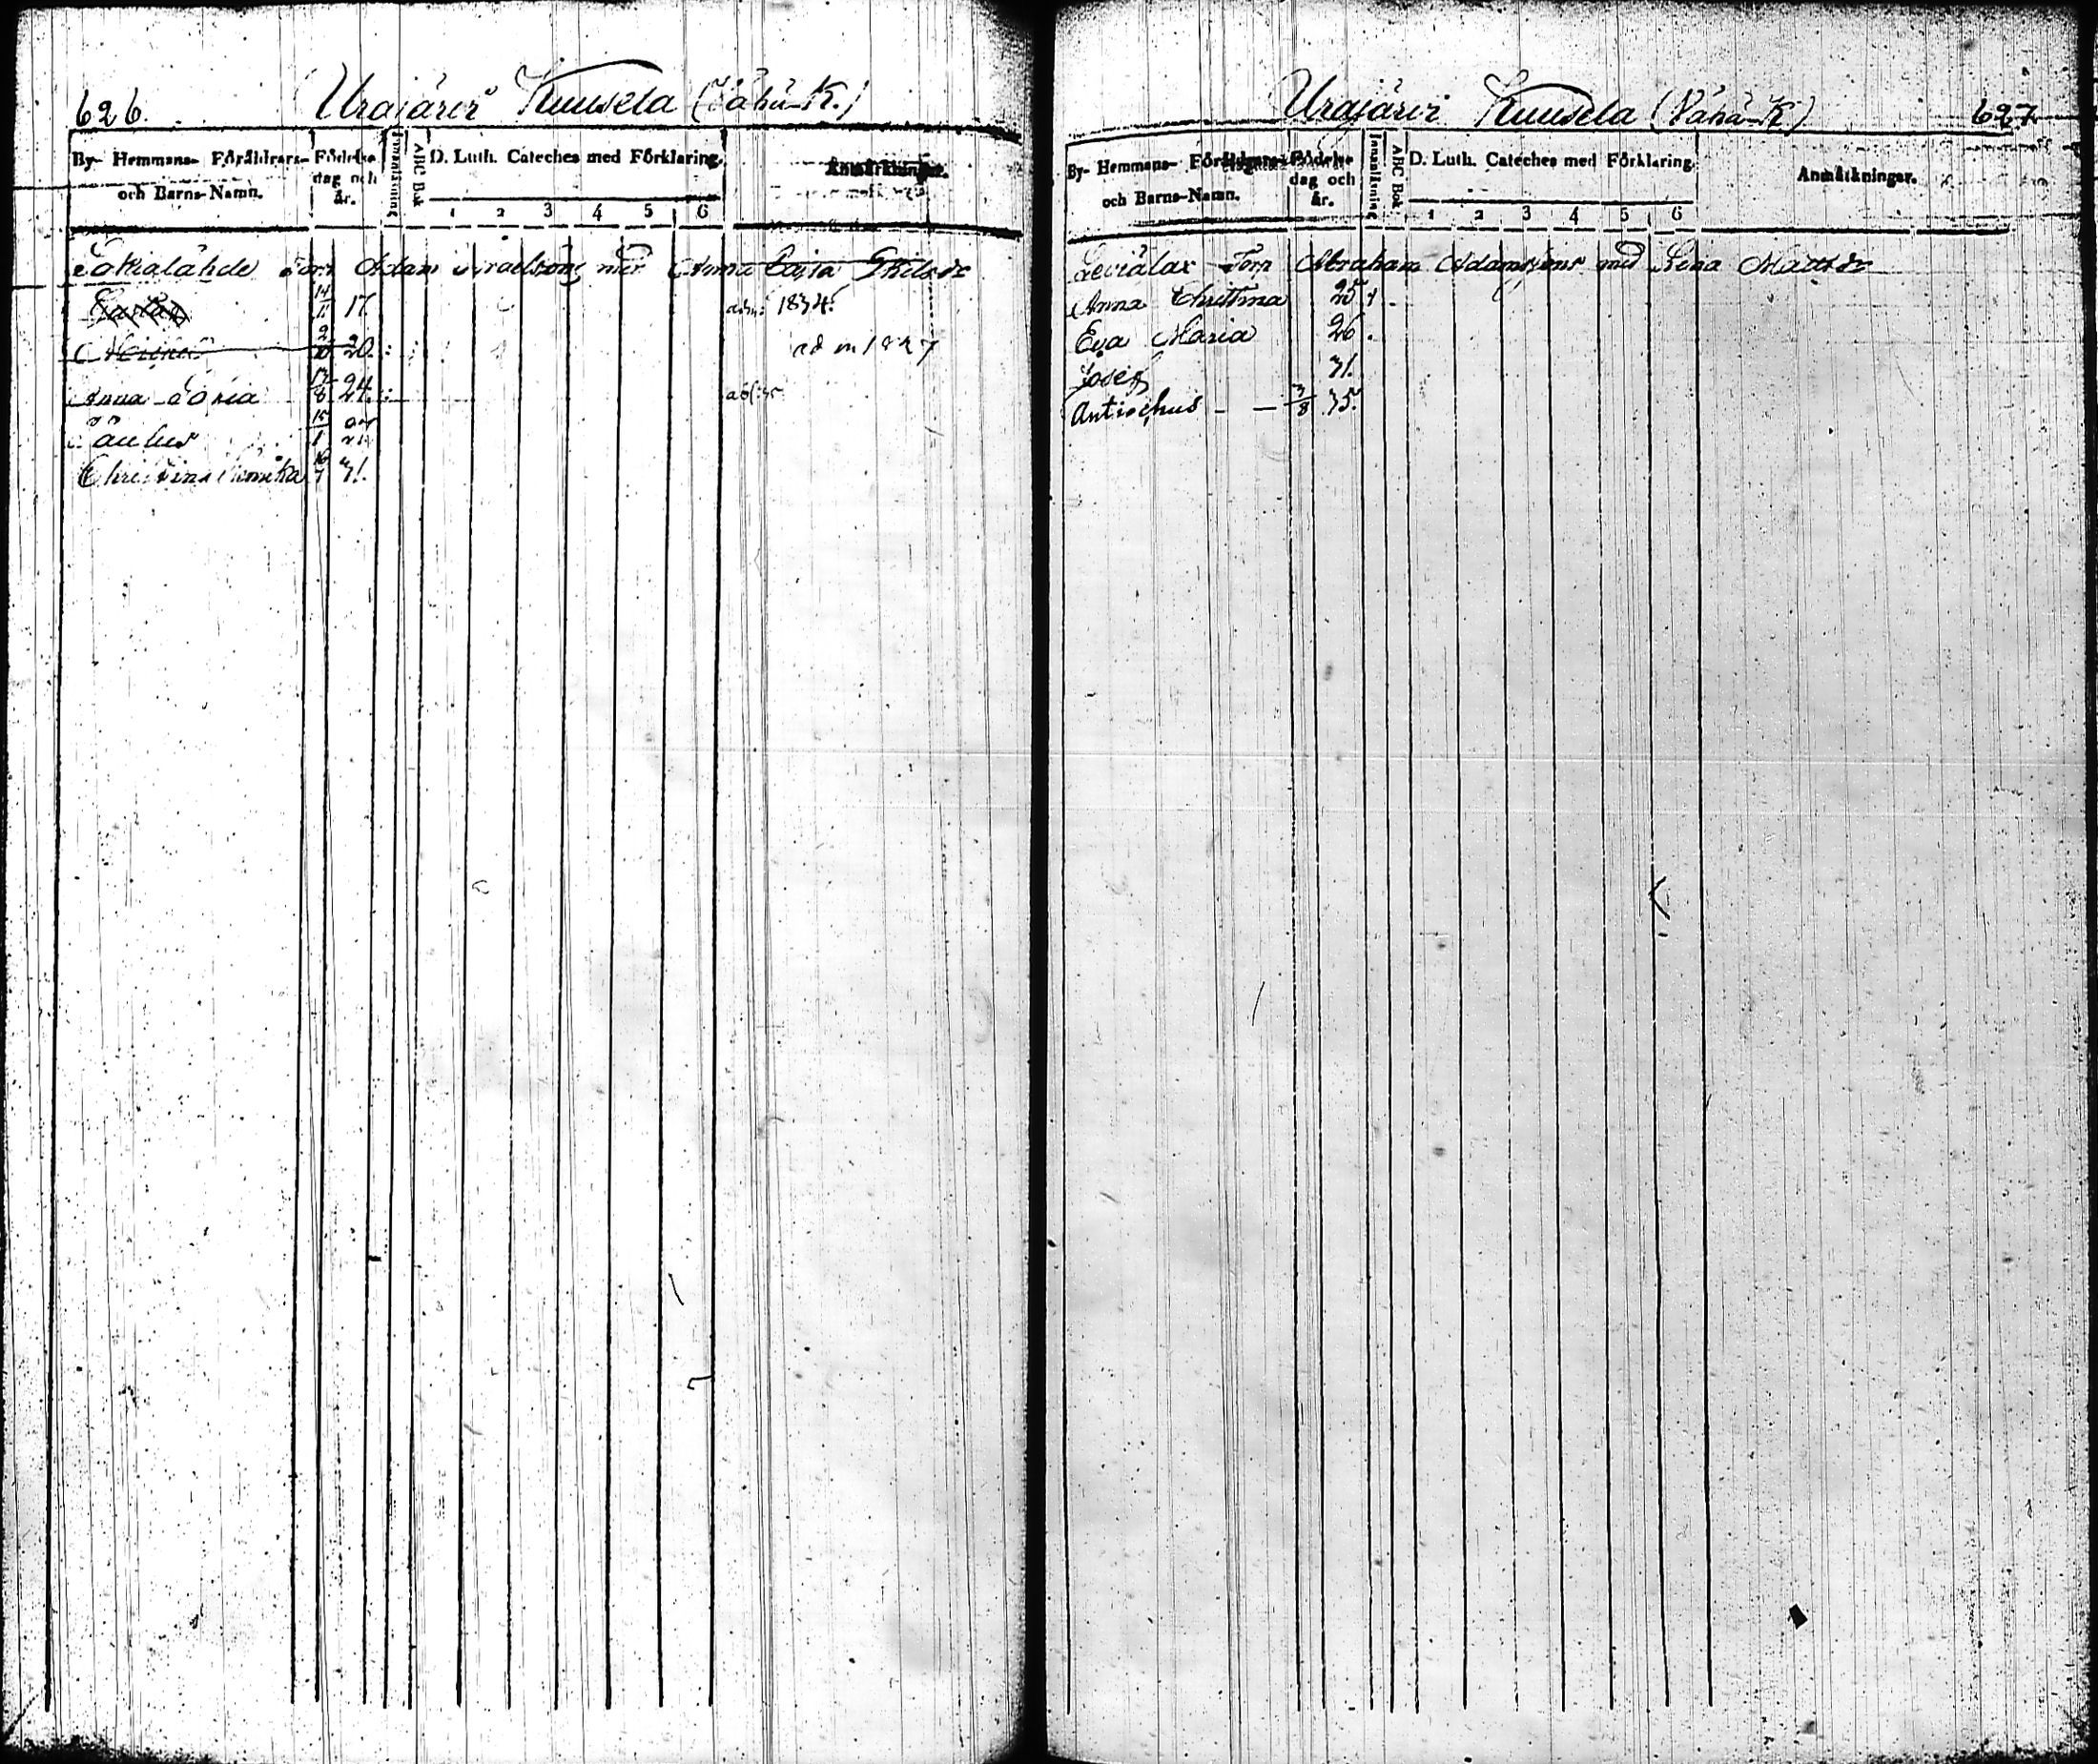 626. Urajärvi Kuusela (Vähä-K.)
By- Hemmans- Föräldrars- och Barns-Namn.
Födelse dag och år.
Innanläsning
ABC Bok
D. Luth. Cateches med Förklaring.
1 2 3 4 5 6
Anmärkningar.
Torp Adam Israelssons med Anna Cajsa
14/11 17. adm: 1834.
9/10 20. adm 1837
Anna 13/8 24.
15/1
Christina 16/7 31.
Urajärvi Kuusela (Vähä-K) 627.
By- Hemmans- Föräldrars- och Barns-Namn.
Födelse dag och år.
Innanläsning
ABC Bok
D. Luth. Cateches med Förklaring.
1 2 3 4 5 6
Anmärkningar.
Torp Abraham Adamssons med Lena Mattsdr
Anna Christina 25
Eva Maria 26.
Josef 31.
Antiochus - - 3/8 35.